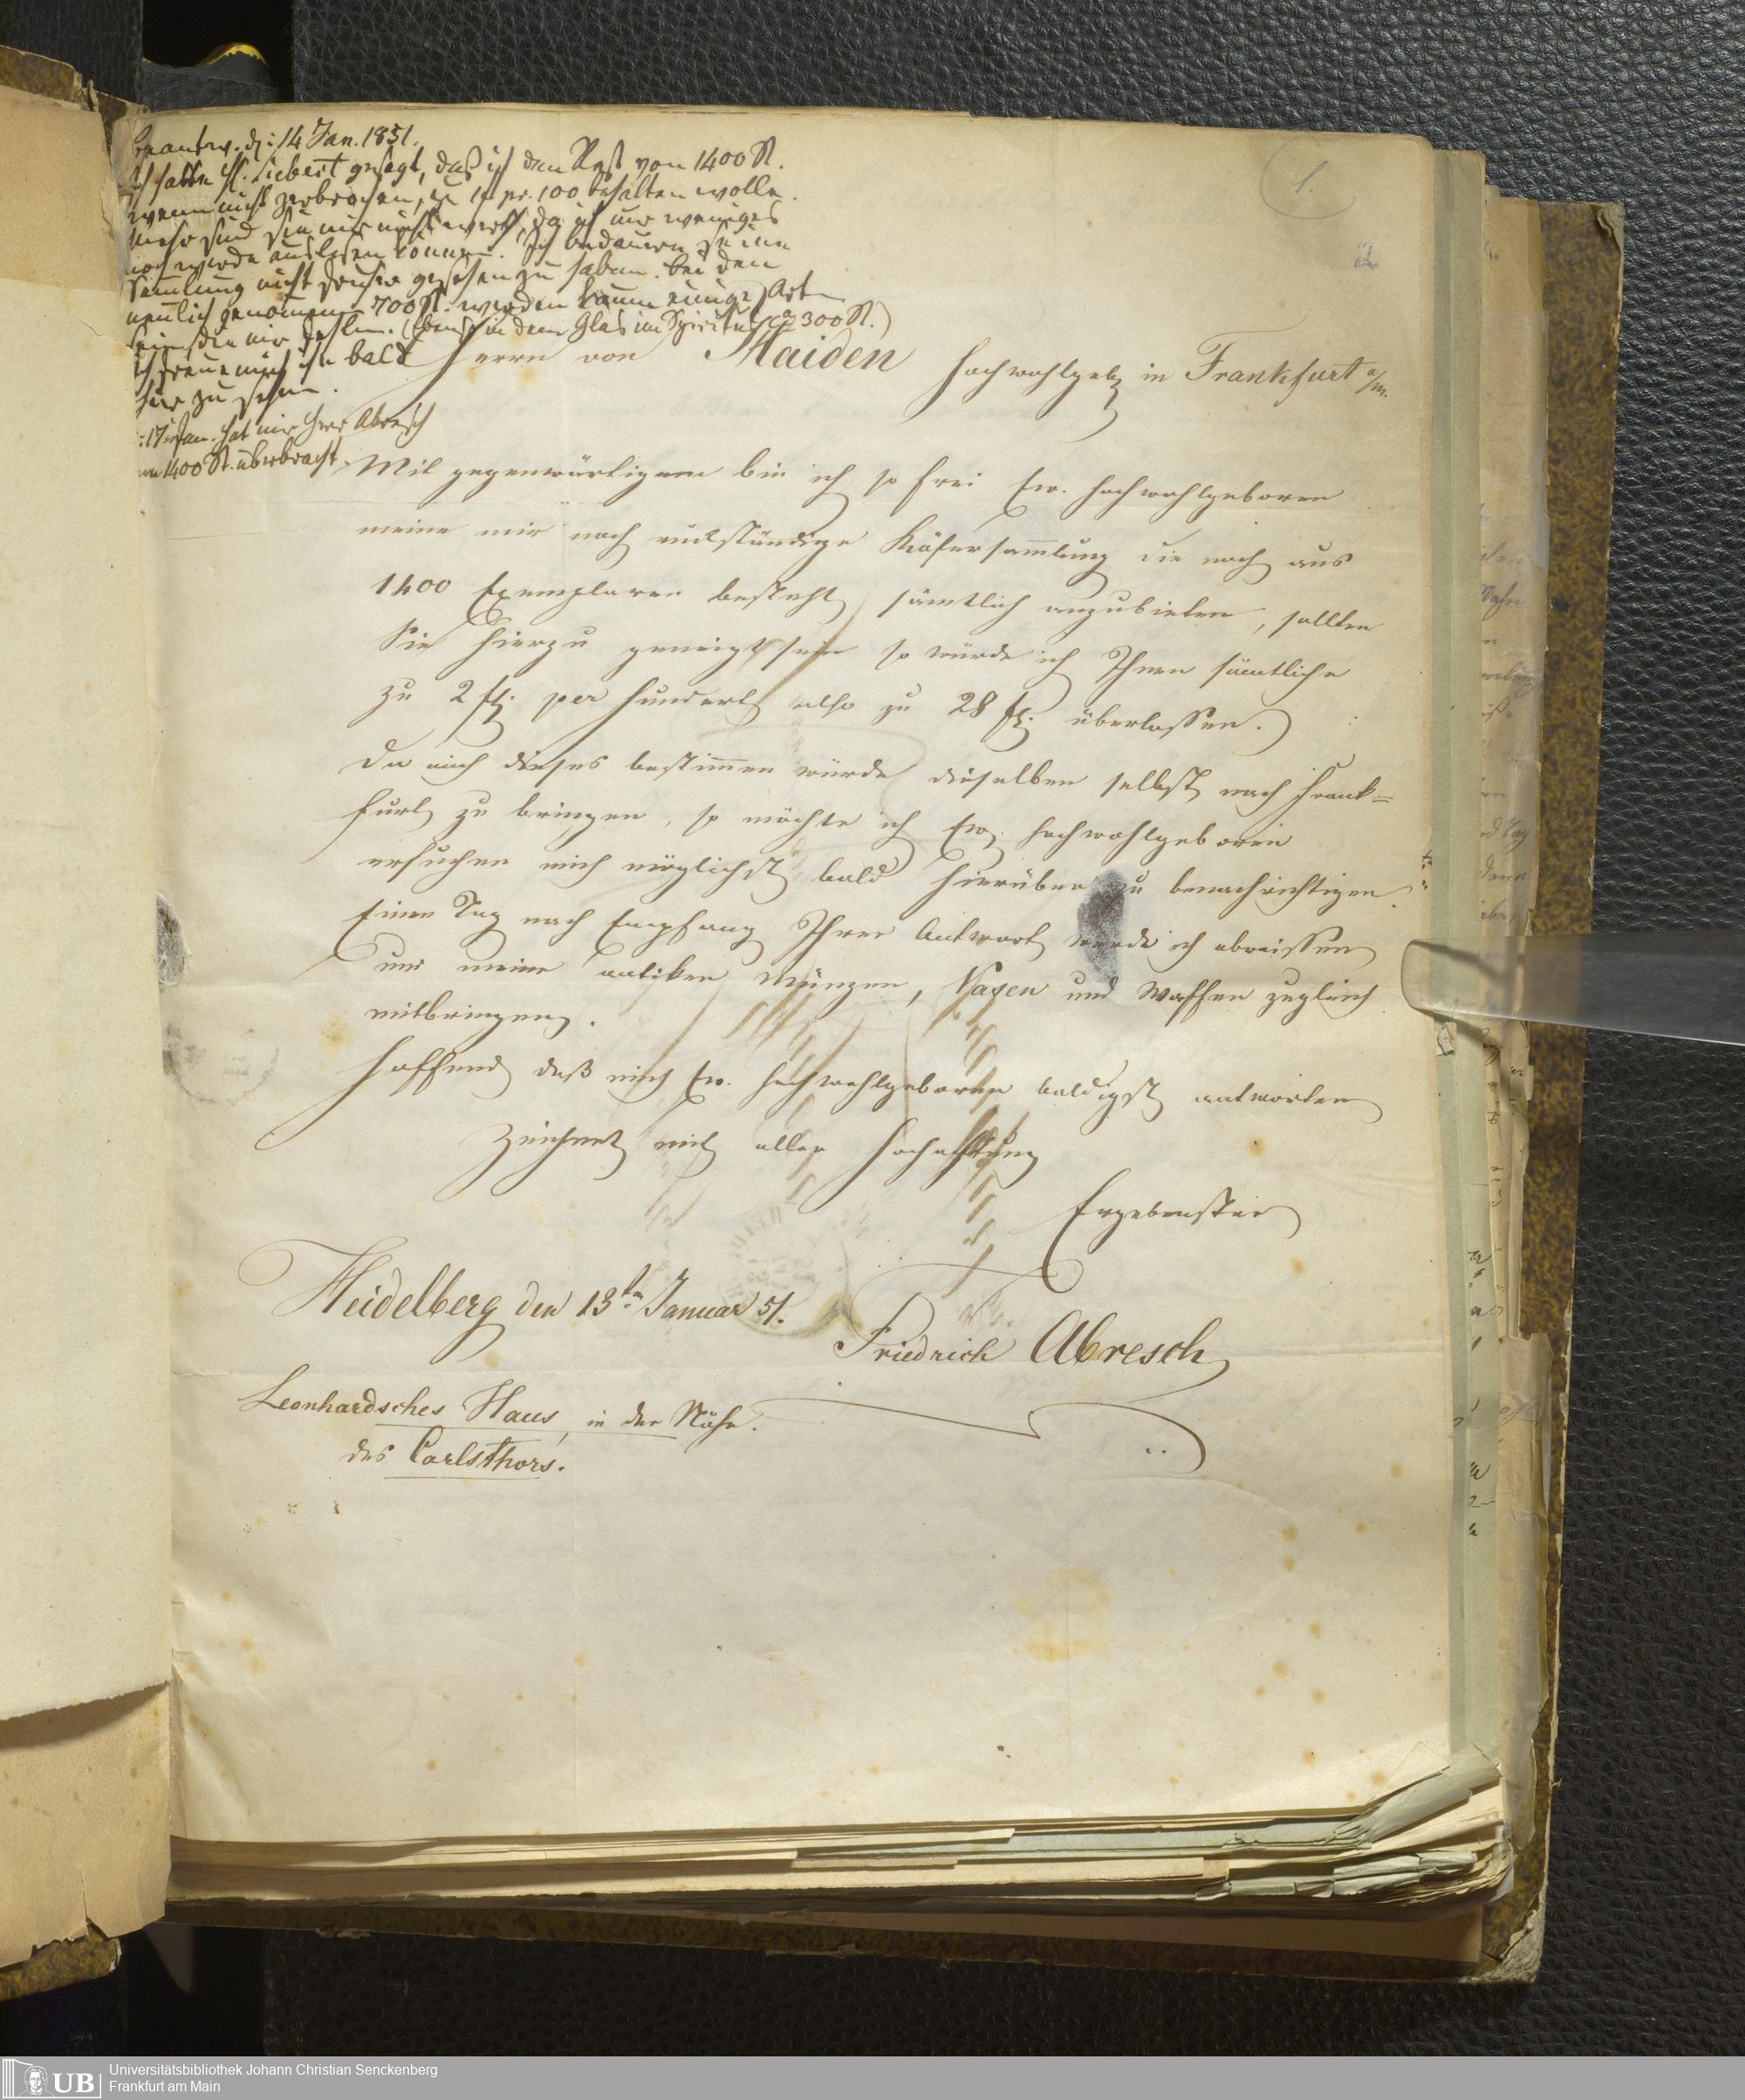 beantw. d: 14 Jan. 1851.
Ich hatte H. Liebert gesagt, daß ich den Rest von 1400 St.
wenn nicht zerbrochen, zu 1f pr. 100 behalten wolle.
Mehr sind sie mir nicht werth, da ich nur weniges
noch werde auslesen können. Ich bedauere seine
Samlung nicht früher gesehen zu haben. bei den
neulich genomenen 700 St. werden kaum einige Arten
sein die mir fehlen. (Ebenso in dem Glas im Spiritus ca 300 St.)
Ich freue mich Sie bald
hier zu sehen.
: 17 Jan. hat mir Herr Abresch
1400 St. überbracht.
1.
2
Herrn von Haiden Hochwohlgeb in Frankfurt a/m.
Mit gegenwärtigem bin ich so frei Ew. Hochwohlgeboren
meine mir noch rückständige Käfersamlung die noch aus
1400 Exemplaren besteht, sämtlich anzubieten, sollten
Sie hierzu geneigt sein so würde ich Ihnen sämtliche
zu 2 fl. per Hundert also zu 28 fl. überlassen.
Da mich dieses bestimmen würde dieselben selbst nach Frank=
furt zu bringen, so möchte ich Ew. Hochwohlgeboren
ersuchen mich möglichst bald hierüber zu benachrichtigen.
Einen Tag nach Empfang Ihrer Antwort werde ich abreissen
und meine antiken Münzen, Vasen und Waffen zugleich
mitbringen.
Hoffend daß mich Ew. Hochwohlgeboren baldigst antworten
Zeichnet mit aller Hochachtung
Ergebenster
Heidelberg den 13ten Januar 51.
Friedrich Abresch
Leonhardsches Haus, in der Nähe
des Carlsthors.
UB
Universitätsbibliothek Johann Christian Senckenberg
Frankfurt am Main